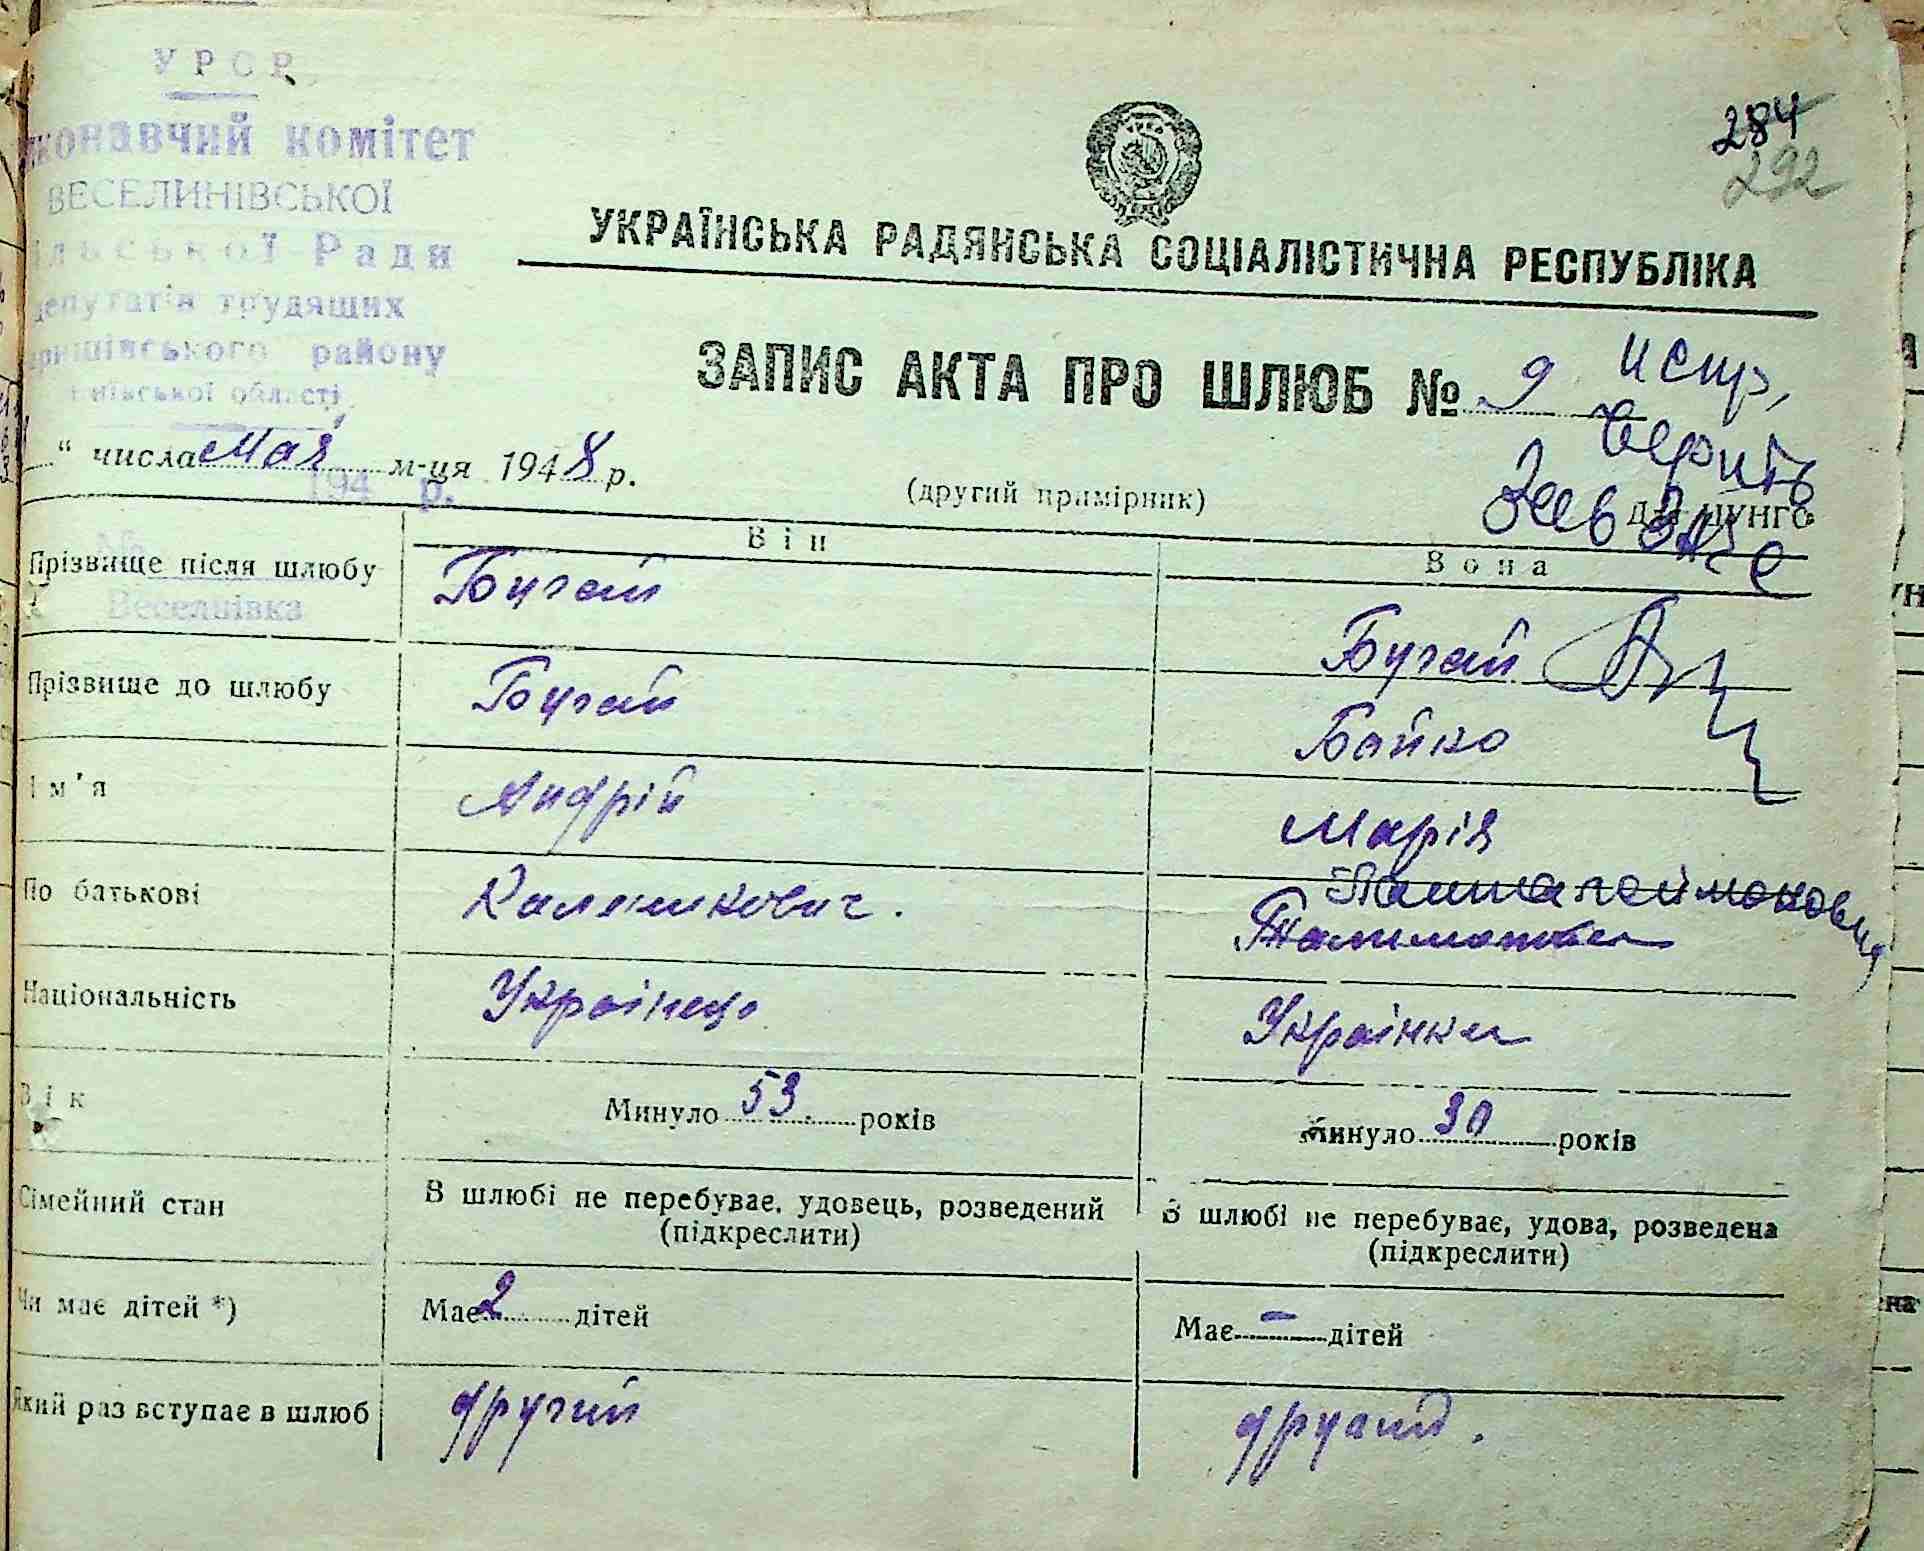 УРСР
284
292
конавчий комітет
ВЕСЕЛИНІВСЬКОЇ
ільської Ради
депутатів трудящих
ришівського району
ївської області
УКРАЇНСЬКА РАДЯНСЬКА СОЦІАЛІСТИЧНА РЕСПУБЛІКА
ЗАПИС АКТА ПРО ШЛЮБ № 9
испр,
верить
Зав
" числа мая м-ця 1948 р.
194 р.
(другий примірник)
№
Веселнівка
Він Вона
Прізвище після шлюбу Бугай Бугай
Прізвище до шлюбу Бугай Бойко
Ім'я Андрій Марія
По батькові Каленикович. Пантелеймоновна
Національність Українець Українка
Вік Минуло 53 років Минуло 30 років
Сімейний стан В шлюбі не перебуває, удовець, розведений В шлюбі не перебуває, удова, розведена
(підкреслити) (підкреслити)
Чи має дітей *) Має 2 дітей Має – дітей
Який раз вступає в шлюб другий другий.